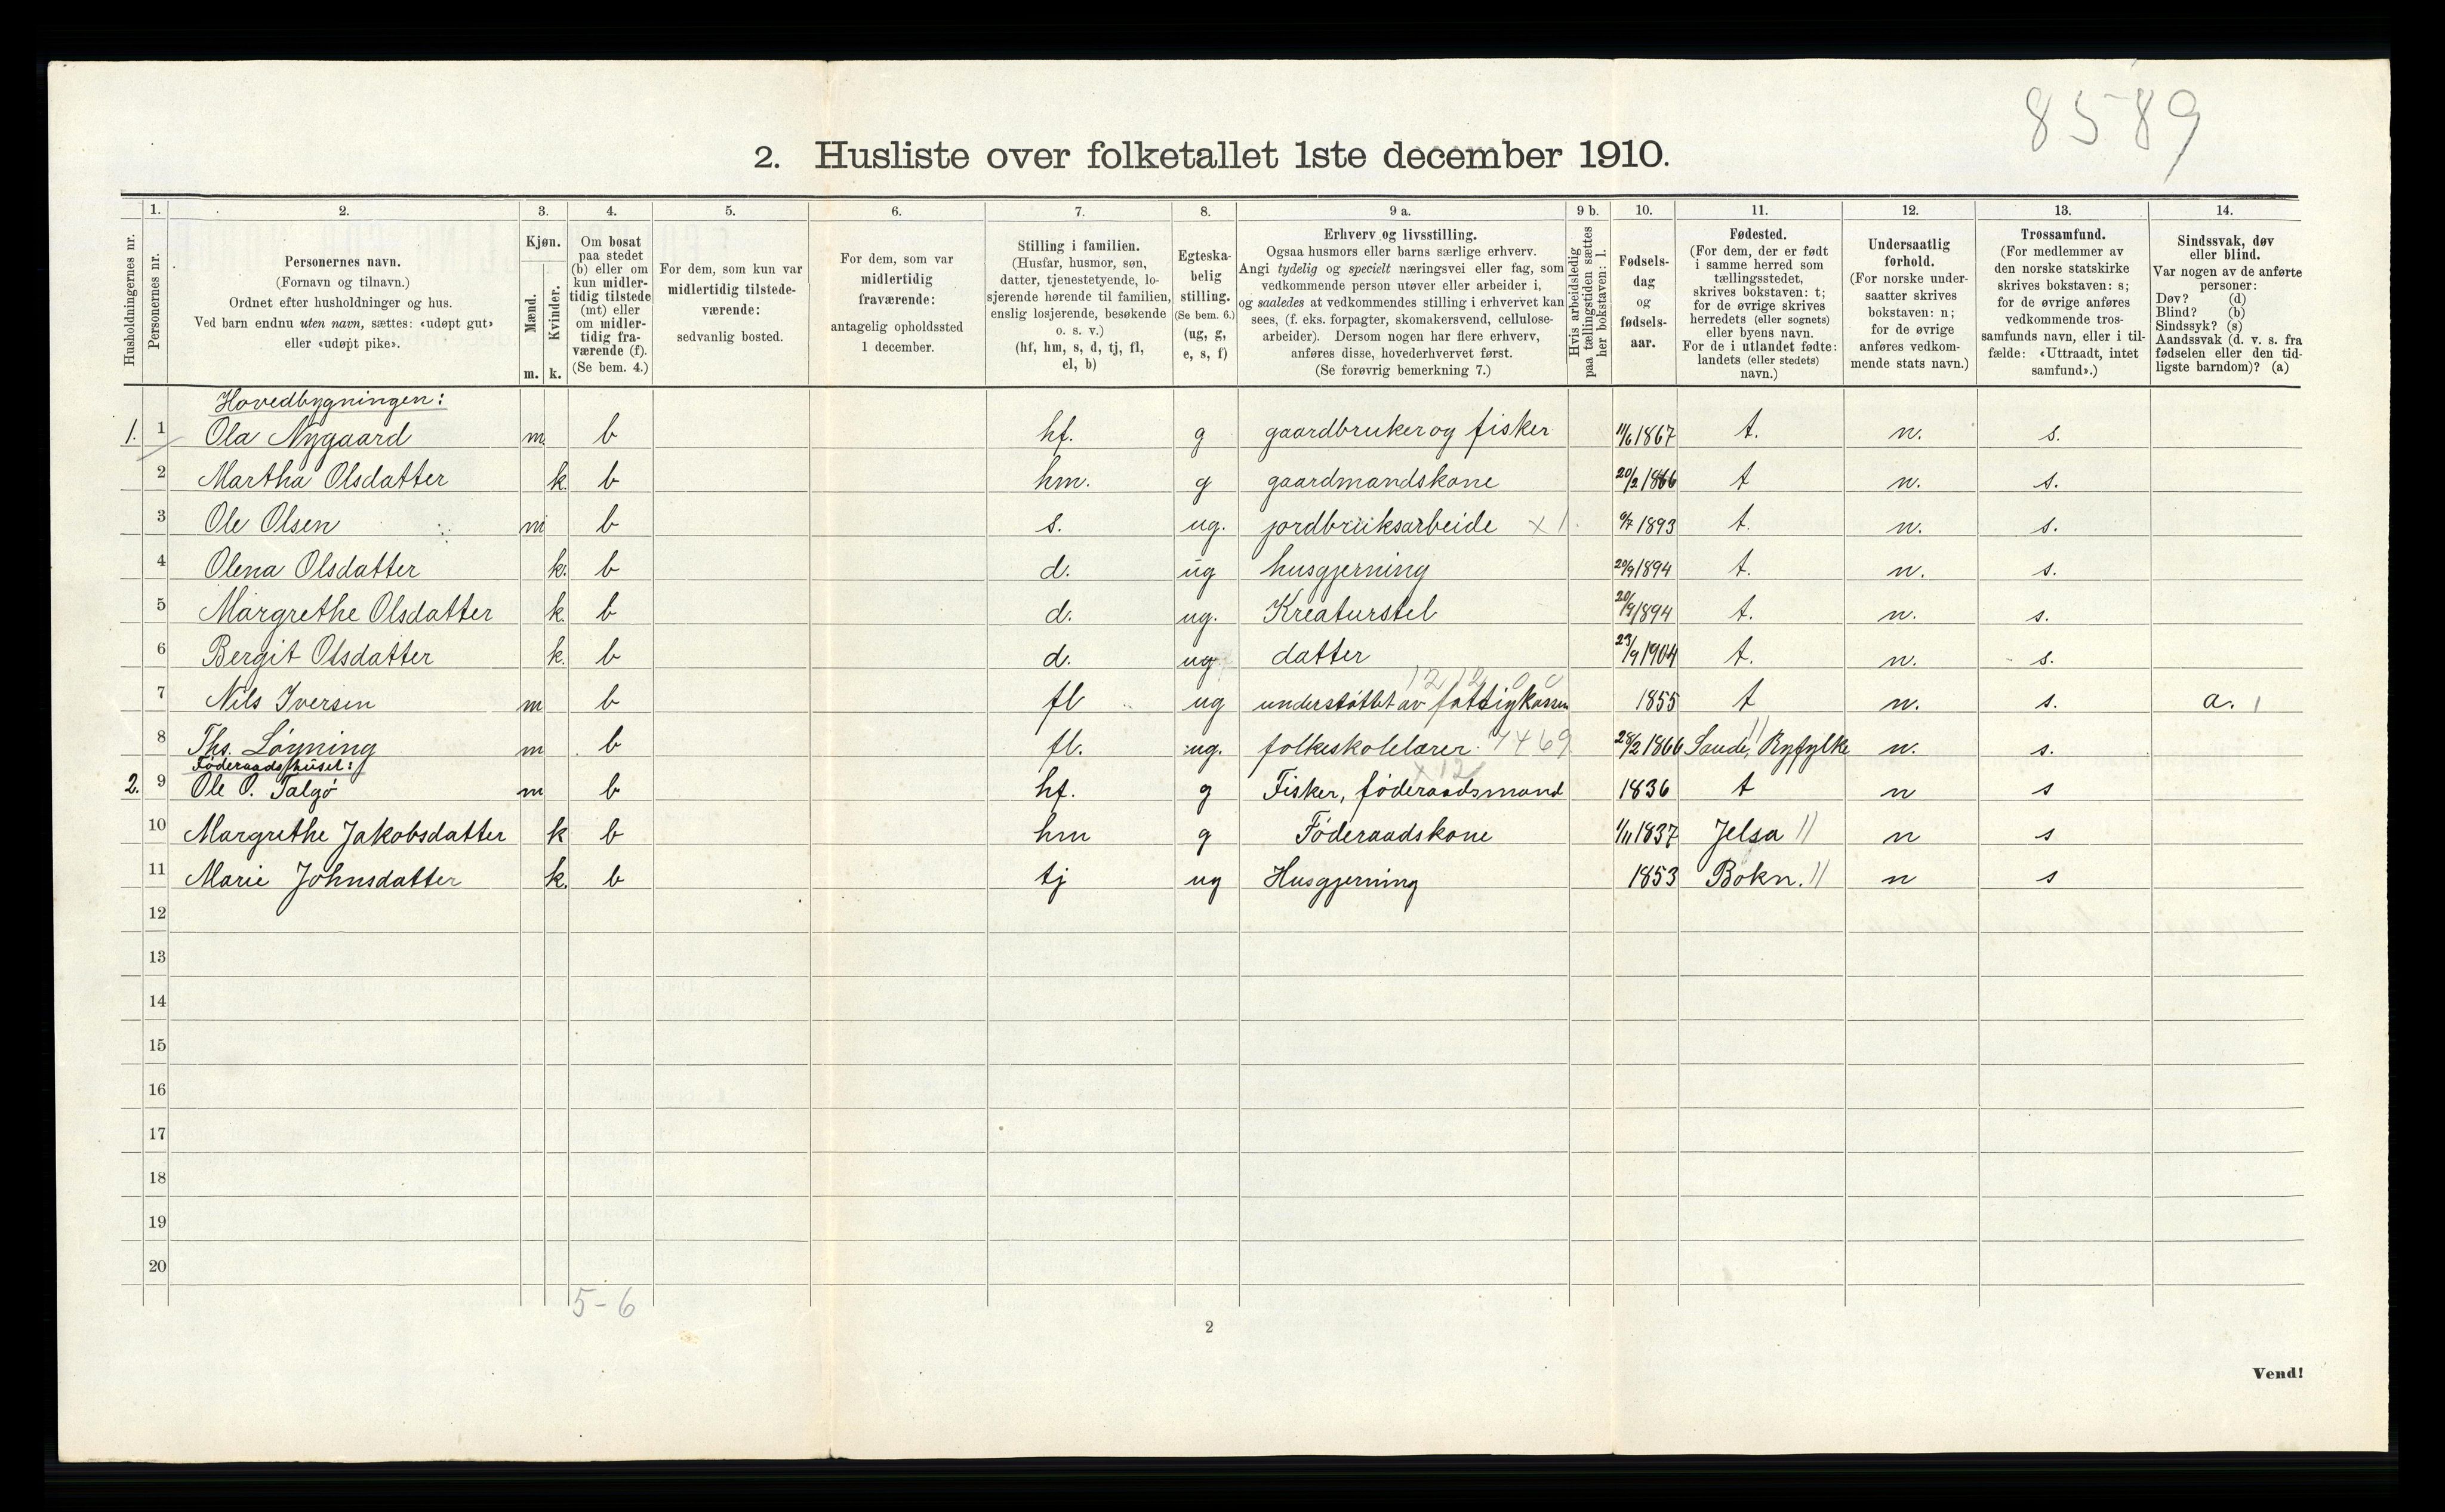 8589
2. Husliste over folketallet 1ste december 1910.
1. 2. 3. 4. 5. 6. 7. 8. 9 a. 9 b. 10. 11. 12. 13. 14.
Husholdningernes nr.
Personernes nr.
Personernes navn.
(Fornavn og tilnavn.)
Ordnet efter husholdninger og hus.
Ved barn endnu uten navn, sættes: «udøpt gut»
eller «udøpt pike».
Kjøn.
Mænd.
Kvinder.
m. k.
Om bosat
paa stedet
(b) eller om
kun midler-
tidig tilstede
(mt) eller
om midler-
tidig fra-
værende (f).
(Se bem. 4.)
For dem, som kun var
midlertidig tilstede-
værende:
sedvanlig bosted.
For dem, som var
midlertidig
fraværende:
antagelig opholdssted
1 december.
Stilling i familien.
(Husfar, husmor, søn,
datter, tjenestetyende, lo-
sjerende hørende til familien,
enslig losjerende, besøkende
o. s. v.)
(hf, hm, s, d, tj, fl,
el, b)
Egteska-
belig
stilling.
(Se bem. 6.)
(ug, g,
e, s, f)
Erhverv og livsstilling.
Ogsaa husmors eller barns særlige erhverv.
Angi tydelig og specielt næringsvei eller fag, som
vedkommende person utøver eller arbeider i,
og saaledes at vedkommendes stilling i erhvervet kan
sees, (f. eks. forpagter, skomakersvend, cellulose-
arbeider). Dersom nogen har flere erhverv,
anføres disse, hovederhvervet først.
(Se forøvrig bemerkning 7.)
Hvis arbeidsledig
paa tællingstiden sættes
her bokstaven: l.
Fødsels-
dag
og
fødsels-
aar.
Fødested.
(For dem, der er født
i samme herred som
tællingsstedet,
skrives bokstaven: t;
for de øvrige skrives
herredets (eller sognets)
eller byens navn.
For de i utlandet fødte:
landets (eller stedets)
navn.)
Undersaatlig
forhold.
(For norske under-
saatter skrives
bokstaven: n;
for de øvrige
anføres vedkom-
mende stats navn.)
Trossamfund.
(For medlemmer av
den norske statskirke
skrives bokstaven: s;
for de øvrige anføres
vedkommende tros-
samfunds navn, eller i til-
fælde: «Uttraadt, intet
samfund».)
Sindssvak, døv
eller blind.
Var nogen av de anførte
personer:
Døv? (d)
Blind? (b)
Sindssyk? (s)
Aandssvak (d. v. s. fra
fødselen eller den tid-
ligste barndom)? (a)
Hovedbygningen:
1. 1 Ola Nygaard m. b hf. g gaardbruker og fisker 11/6 1867 t. n. s.
2 Martha Olsdatter k. b hm. g gaardmandskone 20/2 1866 t n. s.
3 Ole Olsen m b s. ug. jordbruksarbeide x 1. 9/7 1893 t. n. s.
4 Olena Olsdatter k. b d. ug husgjerning 20/9 1894 t. n. s.
5 Margrethe Olsdatter k. b d. ug. Kreaturstel 20/9 1894 t. n. s.
6 Bergit Olsdatter k. b d. ug. datter 23/9 1904 t. n. s.
12 12 0 0
7 Nils Iversen m b fl ug understøttet av fattigkassen 1855 t n. s. a. 1
8 Ths. Løyning m b fl. ug. folkeskolelærer 7469 28/2 1866 Saude, Ryfylke n. s.
Føderaadshuset:
x 12
2. 9 Ole O. Talgø m b hf. g Fisker, føderaadsmand 1836 t n s
10 Margrethe Jakobsdatter k b hm g Føderaadskone 1/11 1837 Jelsa // n s
11 Marie Johnsdatter k. b tj ug Husgjerning 1853 Bokn. // n s
12
13
14
15
16
17
18
19
20
5-6
2
Vend!